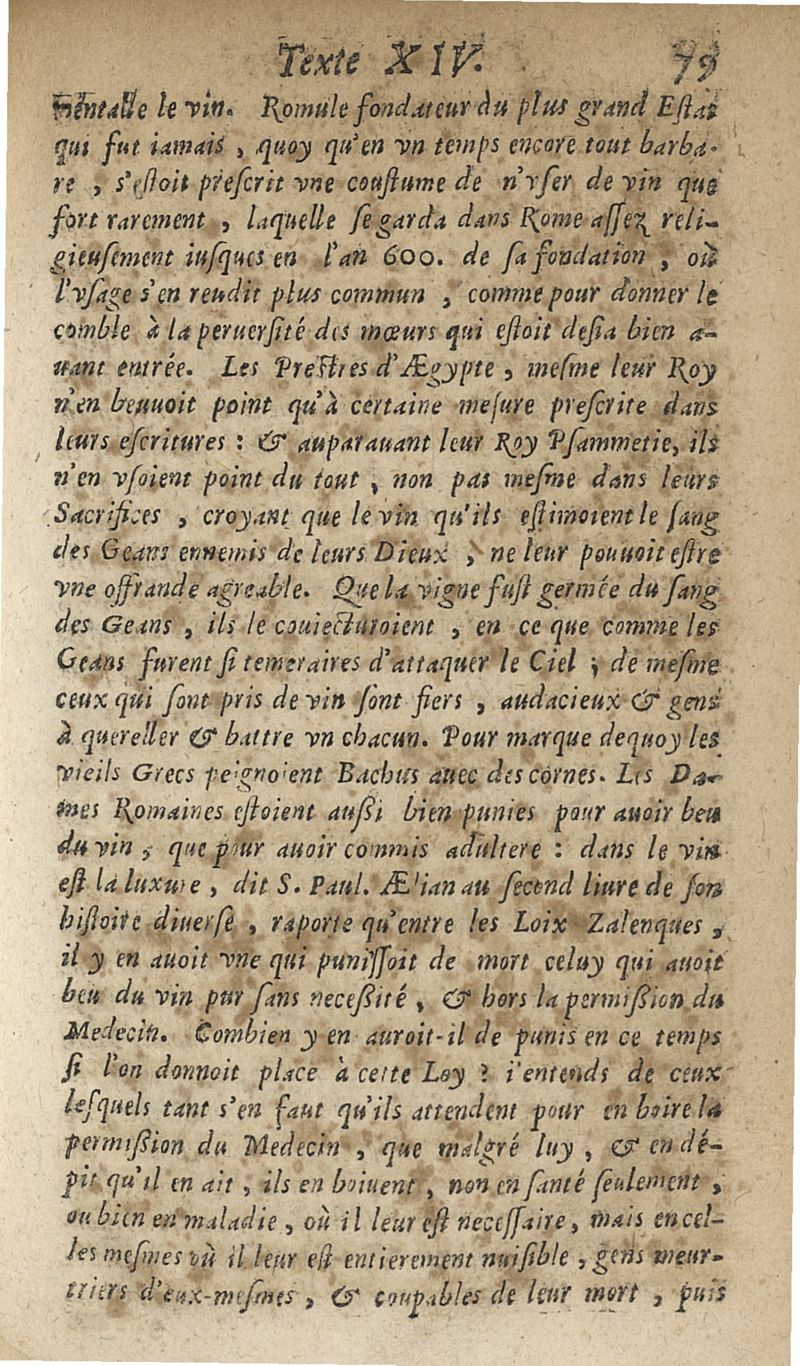 Texte XIV. 79
mentalle le vin. Romule fondateur du plus grand Estat
qui fut iamais, quoy qu'en vn temps encore tout barba-
re, s'eſtoit preſcrit vne couſtume de n'vſer de vin que
fort rarement, laquelle ſe garda dans Rome aſſez reli-
gieuſement iuſques en l'an 600. de ſa fondation, où
l'vſage s'en rendit plus commun, comme pour donner le
comble à la peruerſité des mœurs qui eſtoit deſia bien a-
uant entrée. Les Preſtres d'Ægypte, meſme leur Roy
n'en beuuoit point qu'à certaine meſure preſcrite dans
leurs eſcritures : & auparauant leur Roy Pſammetie, ils
n'en vſoient point du tout, non pas meſme dans leurs
Sacrifices, croyant que le vin qu'ils eſtimoient le ſang
des Geans ennemis de leurs Dieux, ne leur pouuoit eſtre
vne offrande agreable. Que la vigne fuſt germée du ſang
des Geans, ils le coniecturoient, en ce que comme les
Geans furent ſi temeraires d'attaquer le Ciel ; de meſme
ceux qui ſont pris de vin ſont fiers, audacieux & gens
à quereller & battre vn chacun. Pour marque dequoy les
vieils Grecs peignoient Bachus auec des cornes. Les Da-
mes Romaines eſtoient auſſi bien punies pour auoir beu
du vin, que pour auoir commis adultere : dans le vin
eſt la luxure, dit S. Paul. Ælian au ſecond liure de ſon
hiſtoire diuerſe, raporte qu'entre les Loix Zalenques,
il y en auoit vne qui puniſſoit de mort celuy qui auoit
beu du vin pur ſans neceſſité, & hors la permiſſion du
Medecin. Combien y en auroit-il de punis en ce temps
ſi l'on donnoit place à cette Loy ? i'entends de ceux
leſquels tant s'en faut qu'ils attendent pour en boire la
permiſſion du Medecin, que malgré luy, & en dé-
pit qu'il en ait, ils en boiuent, non en ſanté ſeulement,
ou bien en maladie, où il leur eſt neceſſaire, mais en cel-
les meſmes où il leur eſt entierement nuiſible, gens meur-
triers d'eux-meſmes, & coupables de leur mort, puis